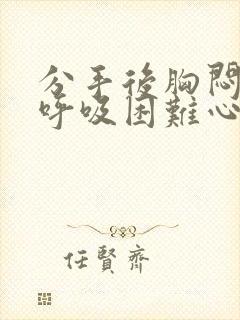 分手後胸悶
呼吸困難心
任賢齊